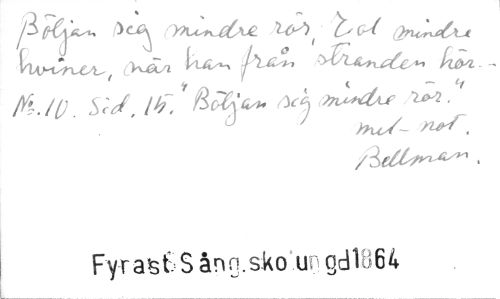 Böljan sig mindre rör, Eol mindre
hviner, när han från stranden hör.-
No.10. Sid. 15. "Böljan sig mindre rör."
mel-not.
Bellman.
Fyrast Sång.sko ungd1864